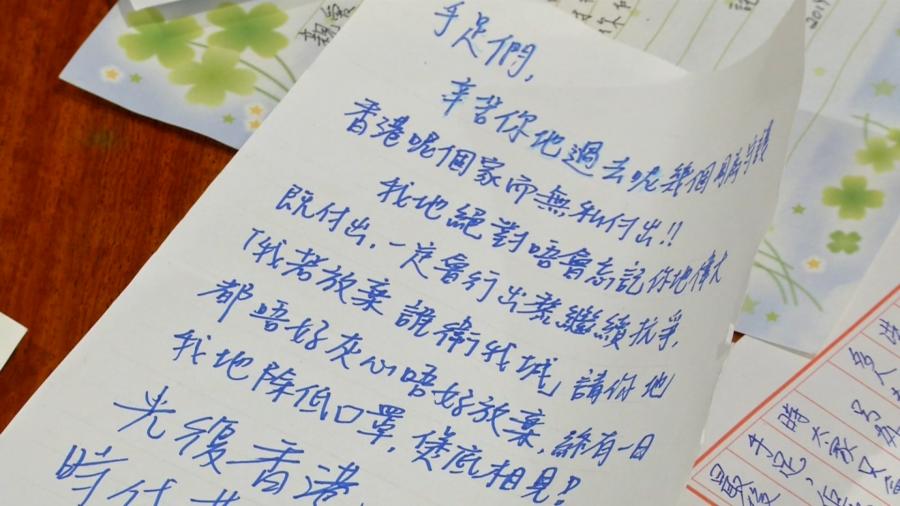 手足們,
辛苦你地過去呢幾個月為守護
香港呢個家而無私付出!!
我地絕對唔會忘記你地偉大
既付出,一定會行出黎繼續抗爭,
「我若放棄 誰衛我城」請你地
都唔好灰心唔好放棄,終有一日
我地除低口罩,煲底相見!
光復香港
時代革
親愛
你們
記
2019
時大家又
手足,
最後